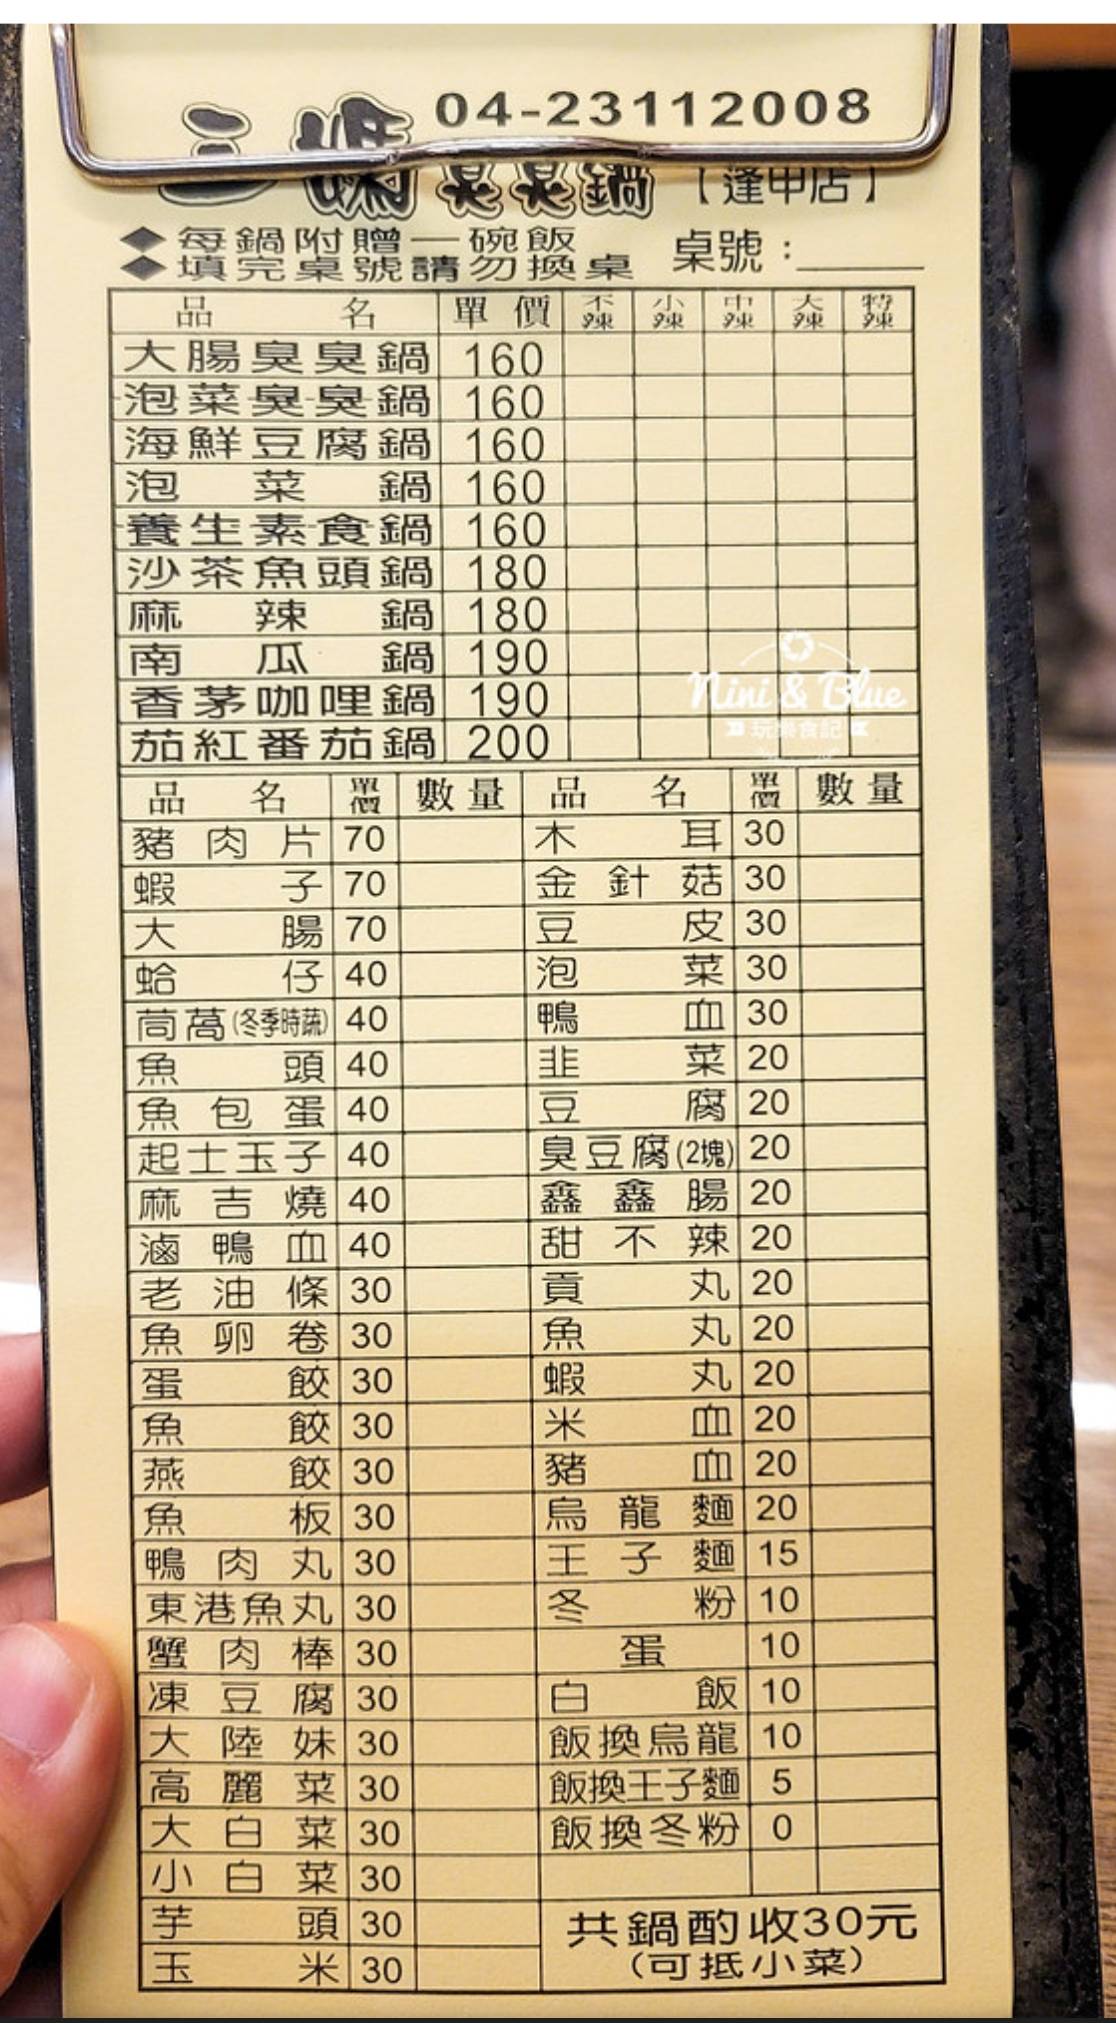 04-23112008
三媽臭臭鍋【逢甲店】
◆每鍋附贈一碗飯
◆填完桌號請勿換桌 桌號:______
品名 單價 不辣 小辣 中辣 大辣 特辣
大腸臭臭鍋 160
泡菜臭臭鍋 160
海鮮豆腐鍋 160
泡菜鍋 160
養生素食鍋 160
沙茶魚頭鍋 180
麻辣鍋 180
南瓜鍋 190
香茅咖哩鍋 190
茄紅番茄鍋 200
Nini & Blue
玩樂食記
品名 單價 數量 品名 單價 數量
豬肉片 70 木耳 30
蝦子 70 金針菇 30
大腸 70 豆皮 30
蛤仔 40 泡菜 30
茼萵(冬季時蔬) 40 鴨血 30
魚頭 40 韭菜 20
魚包蛋 40 豆腐 20
起士玉子 40 臭豆腐(2塊) 20
麻吉燒 40 鑫鑫腸 20
滷鴨血 40 甜不辣 20
老油條 30 貢丸 20
魚卵卷 30 魚丸 20
蛋餃 30 蝦丸 20
魚餃 30 米血 20
燕餃 30 豬血 20
魚板 30 烏龍麵 20
鴨肉丸 30 王子麵 15
東港魚丸 30 冬粉 10
蟹肉棒 30 蛋 10
凍豆腐 30 白飯 10
大陸妹 30 飯換烏龍 10
高麗菜 30 飯換王子麵 5
大白菜 30 飯換冬粉 0
小白菜 30
芋頭 30 共鍋酌收30元
玉米 30 (可抵小菜)